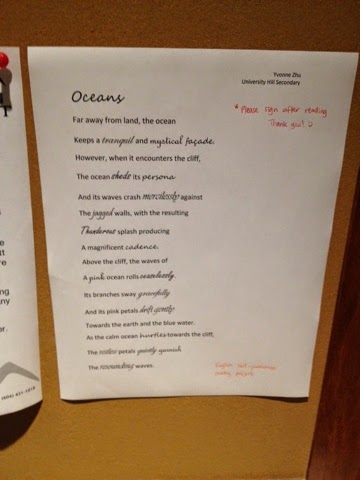 Yvonne Zhu
University Hill Secondary
Oceans
* Please sign after reading
Thank you! :)
Far away from land, the ocean
Keeps a tranquil and mystical façade.
However, when it encounters the cliff,
The ocean sheds its persona
And its waves crash mercilessly against
The jagged walls, with the resulting
Thunderous splash producing
A magnificent cadence.
Above the cliff, the waves of
A pink ocean rolls ceaselessly.
Its branches sway gracefully
And its pink petals drift gently
Towards the earth and the blue water.
As the calm ocean hurtles towards the cliff,
The petals quietly
The resounding waves.